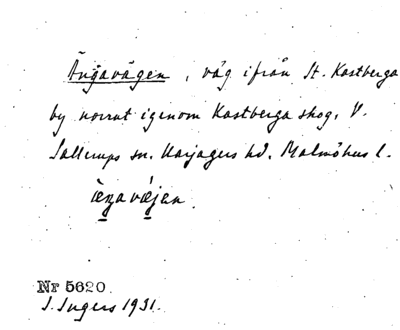 Ängavägen, väg ifrån St. Kastberga
by norrut igenom Kastberga skog, V.
Sallerups sn. Harjagers hd. Malmöhus l.
æŋavæjen.
Nr 5620
I. Ingers 1931.